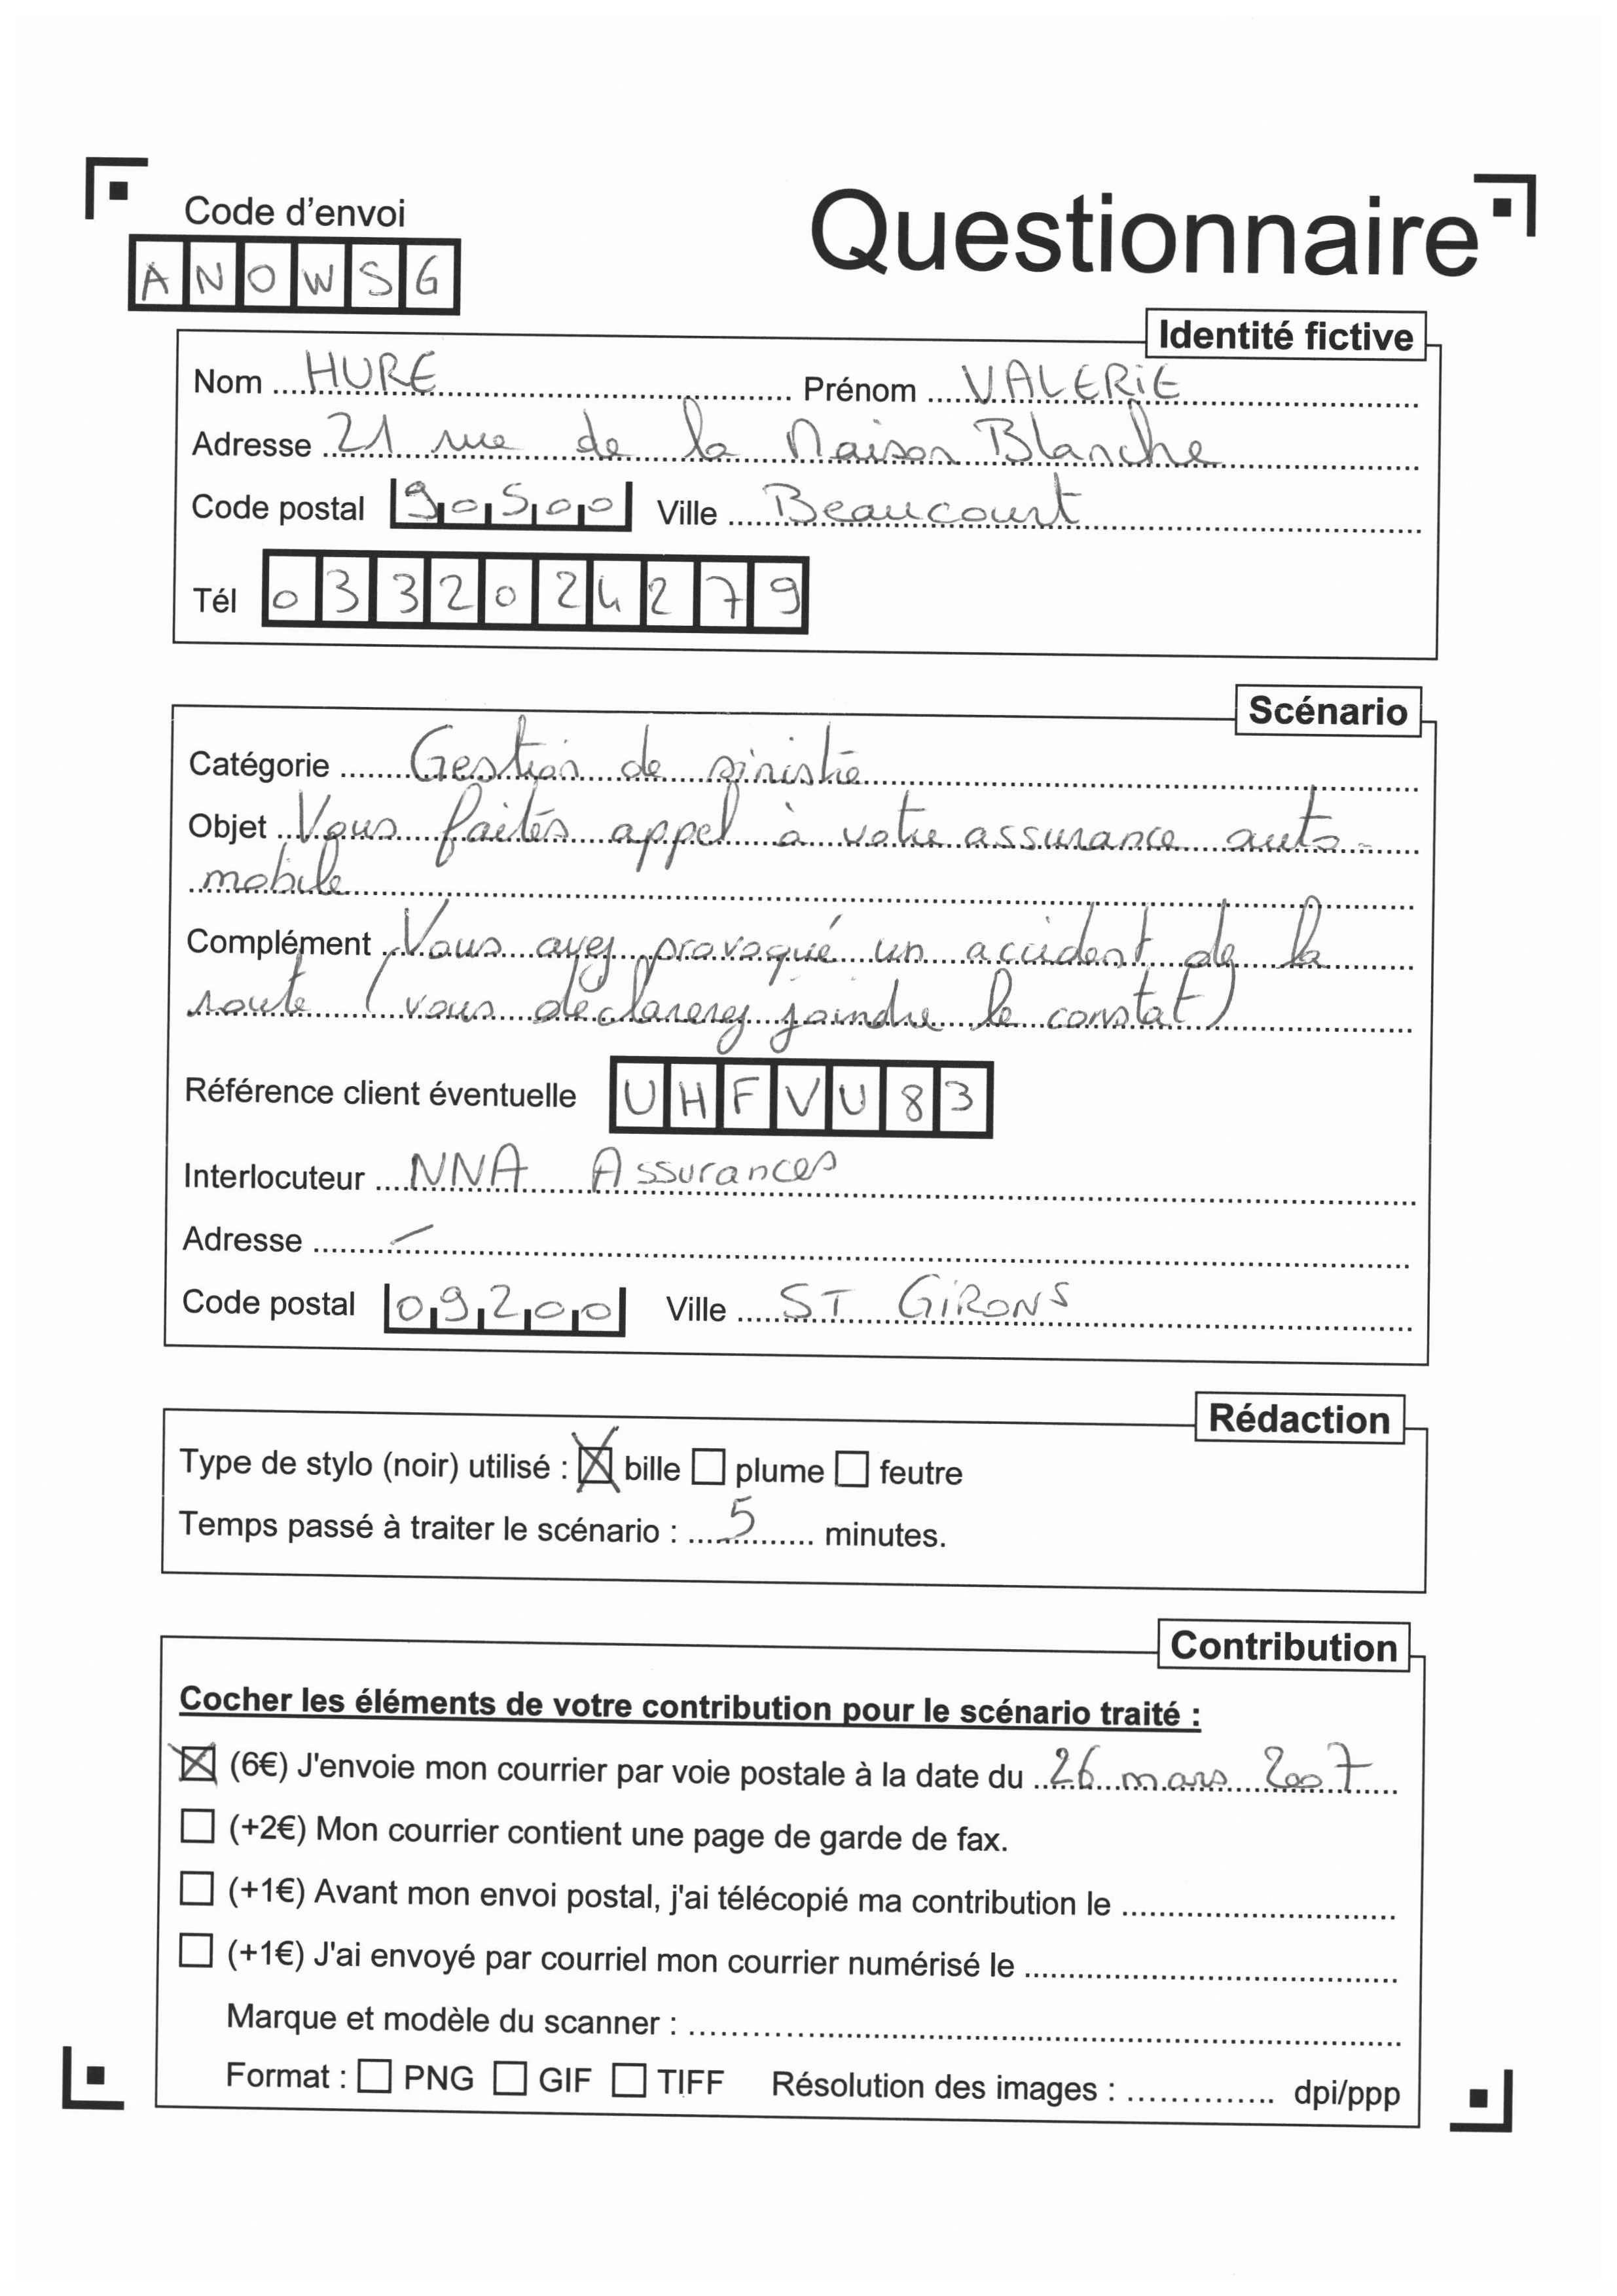 Code d'envoi
Questionnaire
ANOWSG
Identité fictive
Nom HURE Prénom VALERIE
Adresse 21 rue de la Maison Blanche
Code postal 90500 Ville Beaucourt
Tél 0332024279
Scénario
Catégorie Gestion de sinistre
Objet Vous faites appel à votre assurance auto-
mobile
Complément Vous avez provoqué un accident de la
route (vous déclarerez joindre le constat)
Référence client éventuelle UHFVU83
Interlocuteur NNA Assurances
Adresse /
Code postal 09200 Ville ST GIRONS
Rédaction
Type de stylo (noir) utilisé : ☒ bille ☐ plume ☐ feutre
Temps passé à traiter le scénario : 5 minutes.
Contribution
Cocher les éléments de votre contribution pour le scénario traité :
☒ (6€) J'envoie mon courrier par voie postale à la date du 26 mars 2007
☐ (+2€) Mon courrier contient une page de garde de fax.
☐ (+1€) Avant mon envoi postal, j'ai télécopié ma contribution le
☐ (+1€) J'ai envoyé par courriel mon courrier numérisé le
Marque et modèle du scanner :
Format : ☐ PNG ☐ GIF ☐ TIFF Résolution des images : dpi/ppp